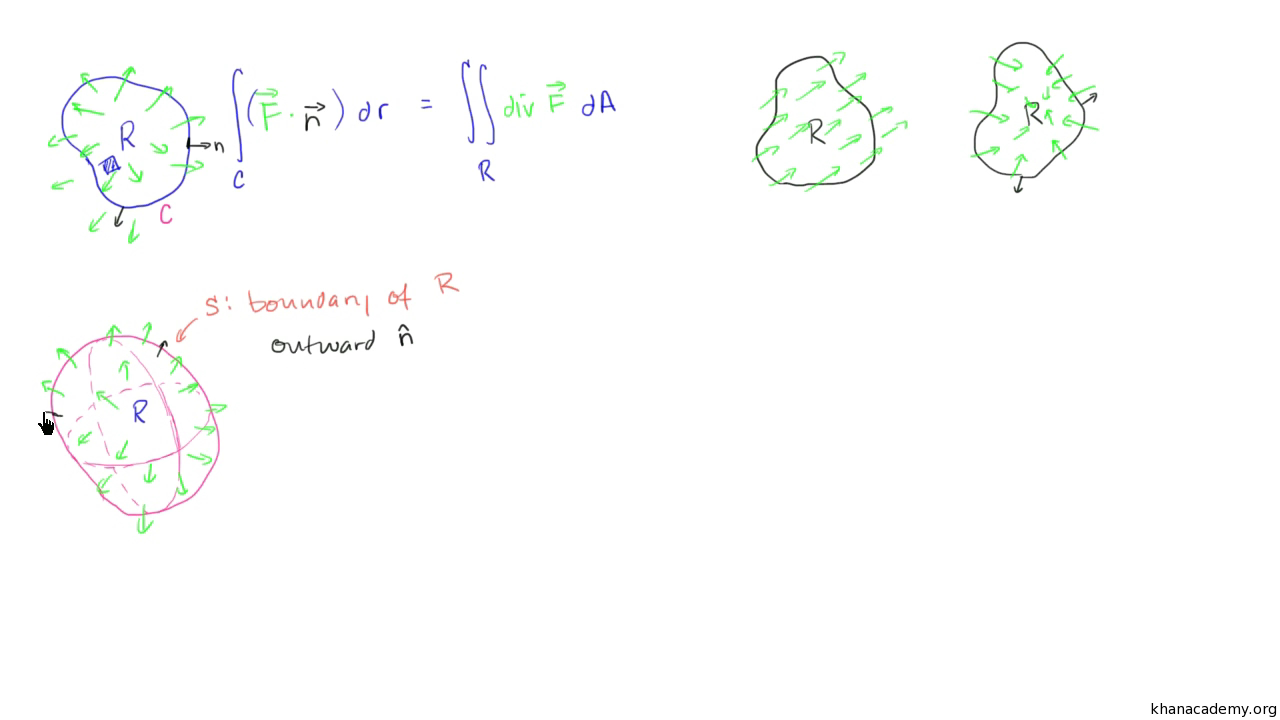 R
n
C
∫_C (F⃗ · n⃗) dr = ∬_R div F⃗ dA
R
R
S: boundary of R
outward n̂
R
khanacademy.org